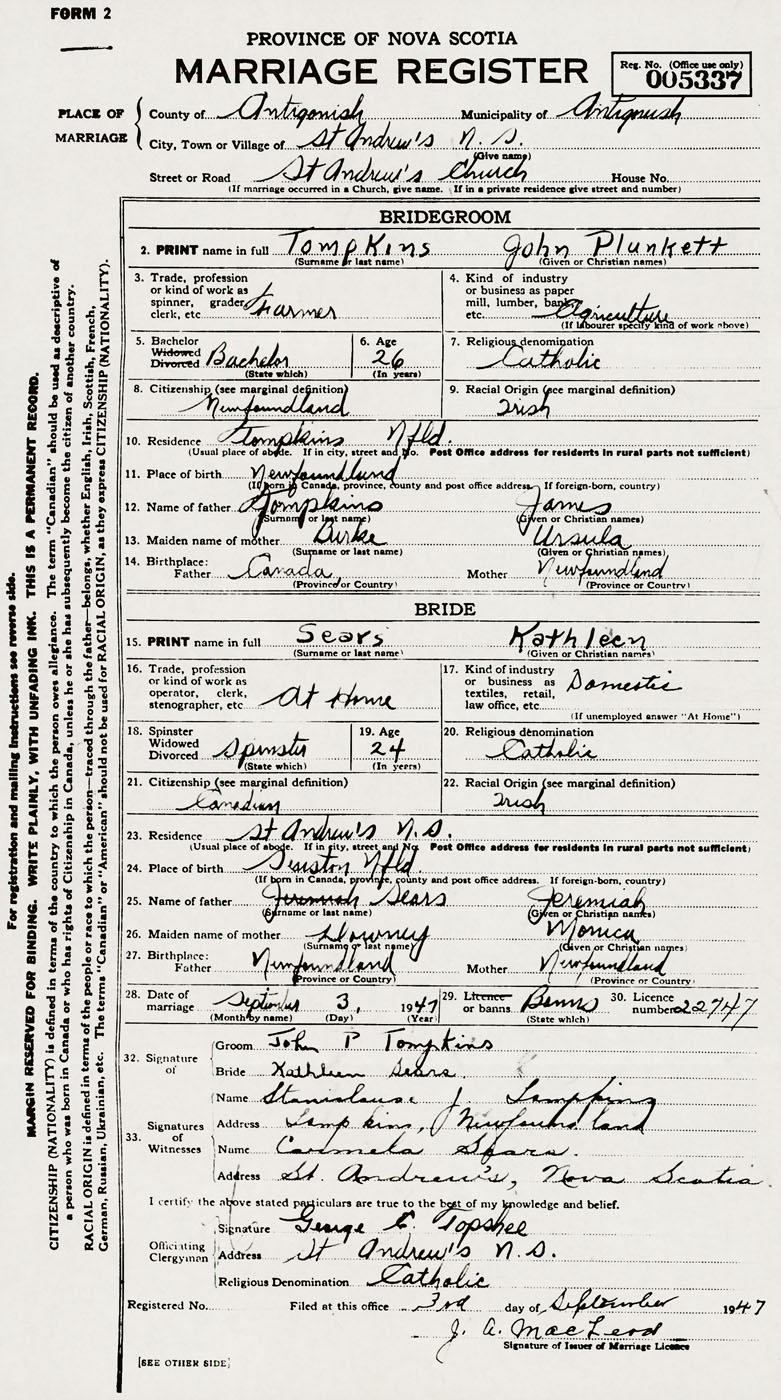 FORM 2
PROVINCE OF NOVA SCOTIA
MARRIAGE REGISTER
Reg. No. (Office use only)
005337
PLACE OF MARRIAGE
County of Antigonish Municipality of Antigonish
City, Town or Village of St Andrew's N.S.
(Give name)
Street or Road St Andrew's Church House No.
(If marriage occurred in a Church, give name. If in a private residence give street and number)
BRIDEGROOM
2. PRINT name in full Tompkins John Plunkett
(Surname or last name) (Given or Christian names)
3. Trade, profession or kind of work as spinner, grader, clerk, etc. Farmer
4. Kind of industry or business as paper mill, lumber, bank, etc. Agriculture
(If labourer specify kind of work above)
5. Bachelor Widowed Divorced Bachelor
(State which)
6. Age 26
(In years)
7. Religious denomination
Catholic
8. Citizenship (see marginal definition)
Newfoundland
9. Racial Origin (see marginal definition)
Irish
10. Residence Tompkins Nfld.
(Usual place of abode. If in city, street and No. Post Office address for residents in rural parts not sufficient)
11. Place of birth Newfoundland
(If born in Canada, province, county and post office address. If foreign-born, country)
12. Name of father Tompkins James
(Surname or last name) (Given or Christian names)
13. Maiden name of mother Burke Ursula
(Surname or last name) (Given or Christian names)
14. Birthplace:
Father Canada Mother Newfoundland
(Province or Country) (Province or Country)
BRIDE
15. PRINT name in full Sears Kathleen
(Surname or last name) (Given or Christian names)
16. Trade, profession or kind of work as operator, clerk, stenographer, etc. At Home
17. Kind of industry or business as textiles, retail, law office, etc. Domestic
(If unemployed answer "At Home")
18. Spinster Widowed Divorced Spinster
(State which)
19. Age 24
(In years)
20. Religious denomination
Catholic
21. Citizenship (see marginal definition)
Canadian
22. Racial Origin (see marginal definition)
Irish
23. Residence St Andrew's N.S.
(Usual place of abode. If in city, street and No. Post Office address for residents in rural parts not sufficient)
24. Place of birth Nfld.
(If born in Canada, province, county and post office address. If foreign-born, country)
25. Name of father Jeremiah Sears Jeremiah
(Surname or last name) (Given or Christian names)
26. Maiden name of mother Downey Monica
(Surname or last name) (Given or Christian names)
27. Birthplace:
Father Newfoundland Mother Newfoundland
(Province or Country) (Province or Country)
28. Date of marriage September 3, 1947
(Month by name) (Day) (Year)
29. Licence or banns Banns
(State which)
30. Licence number 22747
32. Signature of
Groom John P Tompkins
Bride Kathleen Sears
33. Signatures of Witnesses
Name Stanislause J. Tompkins
Address Tompkins, Newfoundland
Name Carmela Sears.
Address St. Andrew's, Nova Scotia
I certify the above stated particulars are true to the best of my knowledge and belief.
Officiating Clergyman
Signature George C. Topshee
Address St Andrew's N.S.
Religious Denomination Catholic
Registered No. Filed at this office 3rd day of September 1947
J. A. MacLeod
Signature of Issuer of Marriage Licence
[SEE OTHER SIDE]
For registration and mailing instructions see reverse side.
MARGIN RESERVED FOR BINDING. WRITE PLAINLY, WITH UNFADING INK. THIS IS A PERMANENT RECORD.
CITIZENSHIP (NATIONALITY) is defined in terms of the country to which the person owes allegiance. The term "Canadian" should be used as descriptive of
a person who was born in Canada or who has rights of Citizenship in Canada, unless he or she has subsequently become the citizen of another country.
RACIAL ORIGIN is defined in terms of the people or race to which the person—traced through the father—belongs, whether English, Irish, Scottish, French,
German, Russian, Ukrainian, etc. The terms "Canadian" or "American" should not be used for RACIAL ORIGIN, as they express CITIZENSHIP (NATIONALITY).